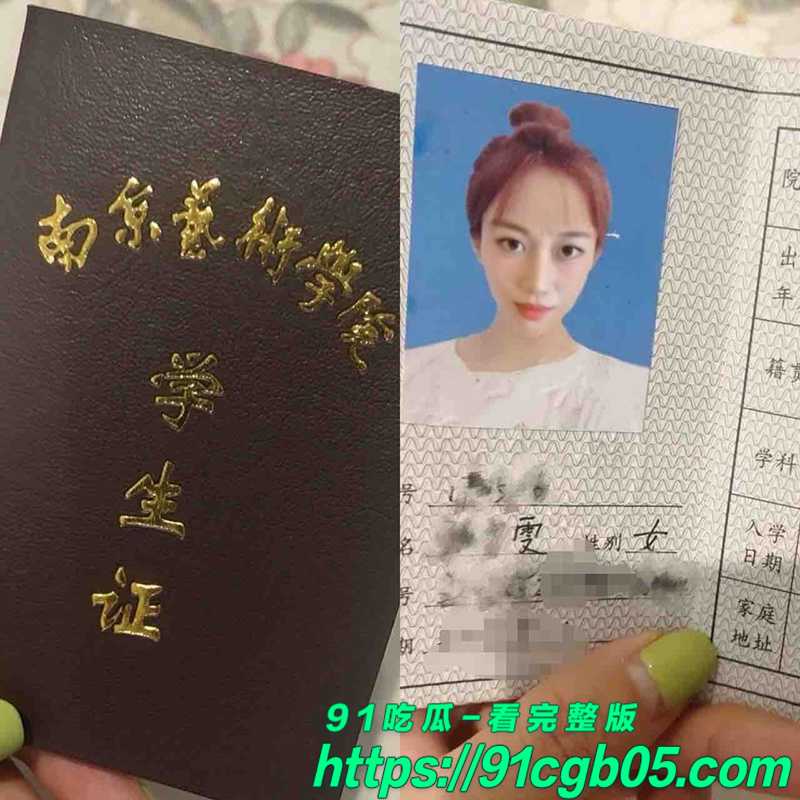 南京藝術學院
学生证
院
出
年
籍贯
学科
号
名 雯 性别 女
入学
日期
号
家庭
地址
期
91吃瓜-看完整版
https://91cgb05.com